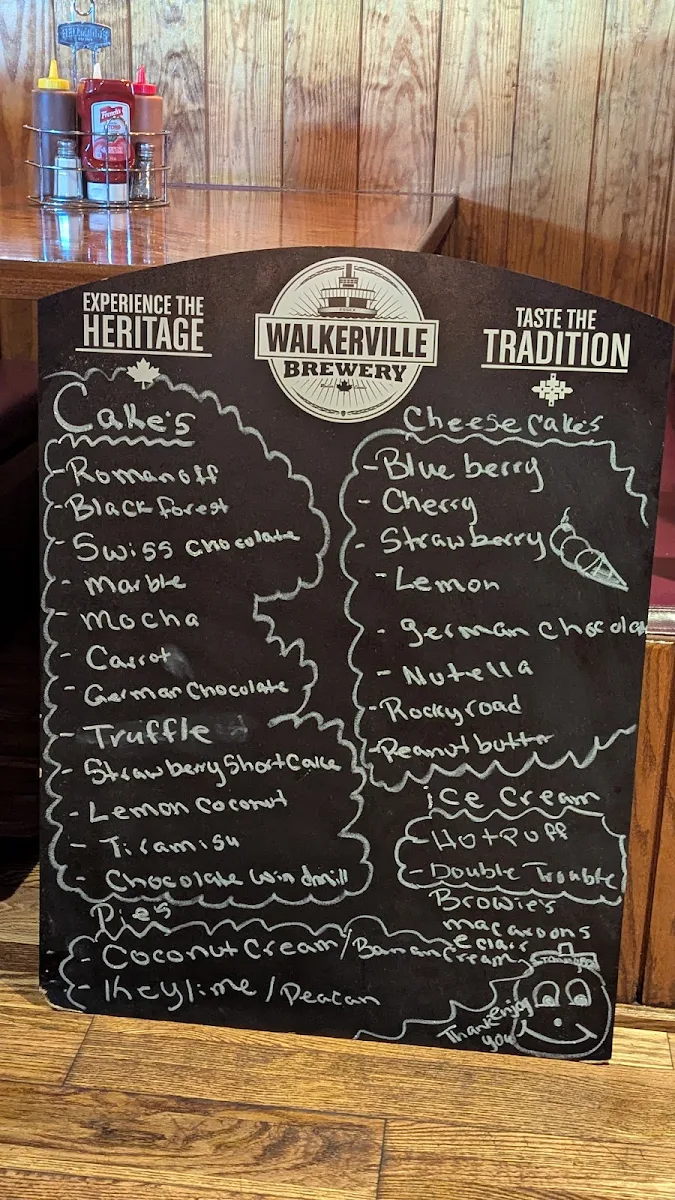 French's
EXPERIENCE THE
HERITAGE
WALKERVILLE
BREWERY
TASTE THE
TRADITION
Cake's
- Romanoff
- Black forest
- Swiss chocolate
- marble
- mocha
- Carrot
- German Chocolate
- Truffle
- Strawberry Short Cake
- Lemon Coconut
- Tiramisu
- Chocolate windmill
Cheese Cake's
- Blue berry
- Cherry
- Strawberry
- Lemon
- german chocola
- Nutella
- Rocky road
- Peanut butter
ice cream
- Hot Puff
- Double Trouble
Browie's
macaroons
eclair
Pie's
- Coconut Cream/Banana Cream
- Keylime / Peacan
Thank you
enjoy